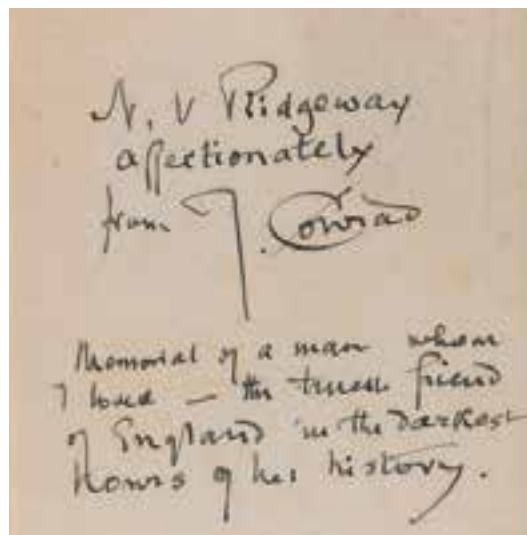 N. V Ridgeway
affectionately
from J. Conrad
Memorial of a man whom
I loved — the truest friend
of England in the darkest
hours of her history.